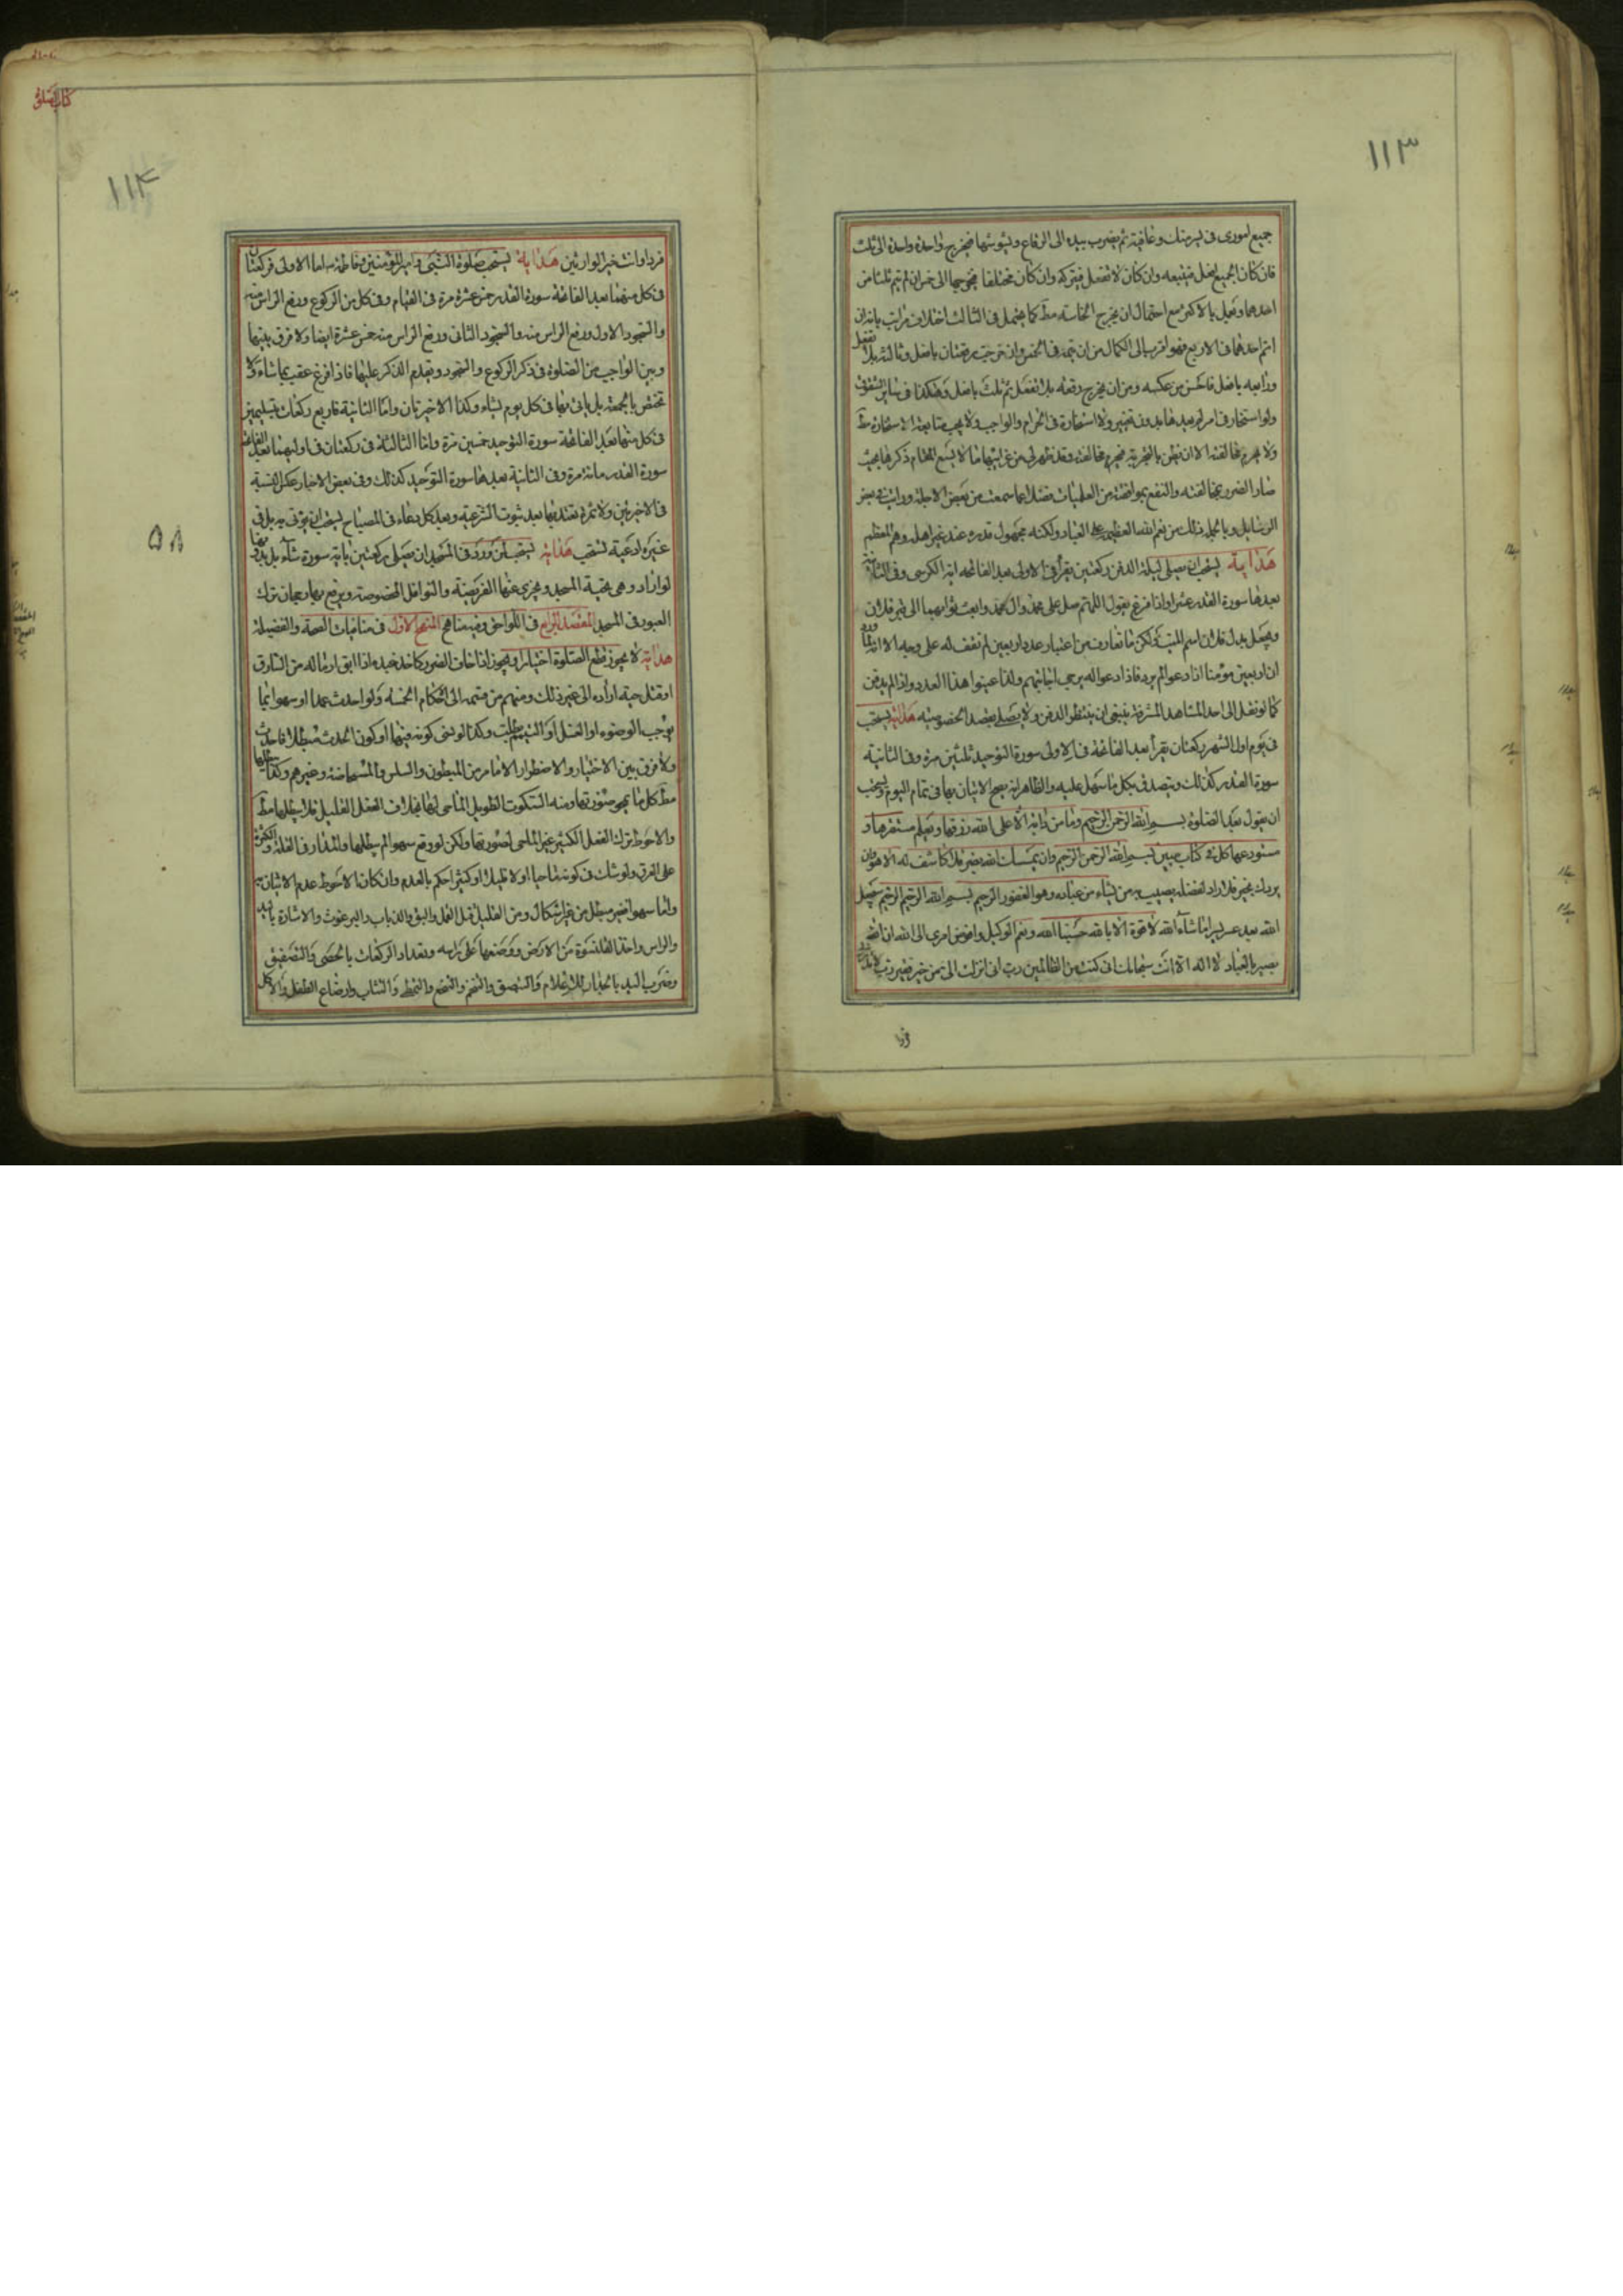 ١١٣
جميع اموري في يسر منك وعافية ثم يضرب بيده الى الرقاع ويشوشها فيخرج واحدة واحدة الى ثلث
فان كان الجميع افعل فيتبعه وان كان لا تفعل فيتركه وان كان مختلفا فيخرجها الى خمس ان لم يتم ثلثا من
احدهما ويعمل بالاكثر مع احتمال ان يخرج الخامسة مط كما يحتمل في الثالث اختلاف مراتب بانه ان
اتم احدهما في الاربع فهو اقرب الى الكمال من ان يتمه في الخمس وان خرجت رقعتان بافعل وثالثه بلا تفعل
ورابعه بافعل فاحسن من عكسه ومن ان يخرج رقعه بلا تفعل ثم ثلث بافعل وهكذا في ساير الشقوق
ولو استخار في امر لم يعدها بدون تغيير ولا استخارة في الحرام والواجب ولا يجب متابعة الاستخارة مط
ولا يحرم مخالفته الا ان يظن بالتجربة فيحرم مخالفته وقد ظهر لي من غرايبها ما لا يسع المقام ذكرها بحيث
صار الضرر بمخالفته والنفع بموافقته من العلميات فضلا عما سمعت من بعض الاجلة ورايت في بعض
الرسايل وبالجملة ذلك من نعم الله العظيمة على العباد ولكنه مجهول قدره عند غير اهله وهم المعظم
هداية يستحب ان يصلي ليلة الدفن ركعتين يقرأ في الاولى بعد الفاتحه اية الكرسي وفي الثانية
بعدها سورة القدر عشرا واذا فرغ يقول اللهم صل على محمد وال محمد وابعث ثوابهما الى قبر فلان
ويجعل بدل فلان اسم الميت ولكن ما تعارف من اعتبار عدد اربعين لم نقف له على وجه الا انه لما ورد
ان اربعين مؤمنا اذا دعوا لم يرد فاذا دعوا له يرجى اجابتهم ولذا عينوا هذا العدد واذا لم يدفن
كما لو نقل الى احد المشاهد المشرفة ينبغي ان ينتظر الدفن ولا يصلي بقصد الخصوصيته هداية يستحب
في يوم اول الشهر ركعتان يقرأ بعد الفاتحة في الاولى سورة التوحيد ثلثين مرة وفي الثانية
سورة القدر كذلك ويتصدق بكل ما سهل عليه والظاهر انه يصح الاتيان بها في تمام اليوم ويستحب
ان يقول بعد الصلوة بسم الله الرحمن الرحيم وما من دابة الا على الله رزقها ويعلم مستقرها و
مستودعها كل في كتاب مبين بسم الله الرحمن الرحيم وان يمسسك الله بضر فلا كاشف له الا هو وان
يردك بخير فلا راد لفضله يصيب به من يشاء من عباده وهو الغفور الرحيم بسم الله الرحيم الرحيم سيجعل
الله بعد عسر يسرا ما شاء الله لا قوة الا بالله حسبنا الله ونعم الوكيل وافوض امري الى الله ان الله
بصير بالعباد لا اله الا انت سبحانك اني كنت من الظالمين رب اني لما انزلت الي من خير فقير رب لا تذرني
فردا
١١۴
كتاب الصلوة
فردا وانت خير الوارثين هداية يستحب صلوة النبي وامير المؤمنين وفاطمة اما الاولى فركعتان
في كل منهما بعد الفاتحة سورة القدر خمس عشرة مرة في القيام وفي كل من الركوع ورفع الراس منه
والسجود الاول ورفع الراس منه والسجود الثاني ورفع الراس منه خمس عشرة ايضا ولا فرق بينهما
وبين الواجب من الصلوة في ذكر الركوع والسجود ويقدم الذكر عليها فاذا فرغ عقب بما شاء ولا
تختص بالجمعة بل ياتي بها في كل يوم لشاء وكذا الاخيرتان واما الثانية فاربع ركعات بتسليمتين
في كل منها بعد الفاتحة سورة التوحيد خمسين مرة واما الثالثة فركعتان في اوليهما بعد الفاتحة
سورة القدر مائة مرة وفي الثانية بعدها سورة التوحيد كذلك وفي بعض الاخبار عكس النسبة
في الاخيرتين ولا ثمرة بعد ثبوت الشرعية وبعد كل دعاء في المصباح يستحب ان يؤتى به بل في
غيره ادعية تستحب هداية يستحب لمن ورد في المسجد ان يصلي ركعتين باية سورة شاء بل بدونها
لو اراد وهي تحية المسجد ويجزي عنها الفريضة والنوافل المخصوصة ويرفع بها رجحان ترك
العبور في المسجد المقصد الرابع في اللواحق وفيه مناهج المنهج الاول في منافيات الصحة والفضيلة
هداية لا يجوز قطع الصلوة اختيارا ويجوز اذا خاف الضرر كاخذ عبده اذا ابق او ماله من السارق
او قتل حية او اراده الى غير ذلك ومنهم من قسمه الى احكام الخمسة ولو احدث عمدا او سهوا مما
يوجب الوضوء او الغسل او التيمم بطلت وكذا لو نسي كونه فيها او كون الحدث مبطلا فاحدث
ولا فرق بين الاختيار والاضطرار الا ما مر من المبطون والسلس والمستحاضة وغيرهم وكذا يبطلها
مط كل ما يمحو صورتها ومنه السكوت الطويل الماحي لها بخلاف الفعل القليل فلا يبطلها مط
والاحوط ترك الفعل الكثير غير الماحي لصورتها ولكن لو وقع سهوا لم يبطلها والمدار في القلة والكثرة
على العرف ولو شك في كونه ماحيا او لا قليلا او كثيرا حكم بالعدم وان كان الاحوط عدم الاتيان به
واما سهوا فغير مبطل من غير اشكال ومن القليل قتل القمل والبق والذباب والبرغوث والاشارة باليد
والراس واخذ القلنسوة من الارض ووضعها على راسه وتعداد الركعات بالحصى والتصفيق
وضرب اليد بالجدار للاعلام والبصق والتنخم والتمطي والتثاب وارضاع الطفل والاكل
٥٨